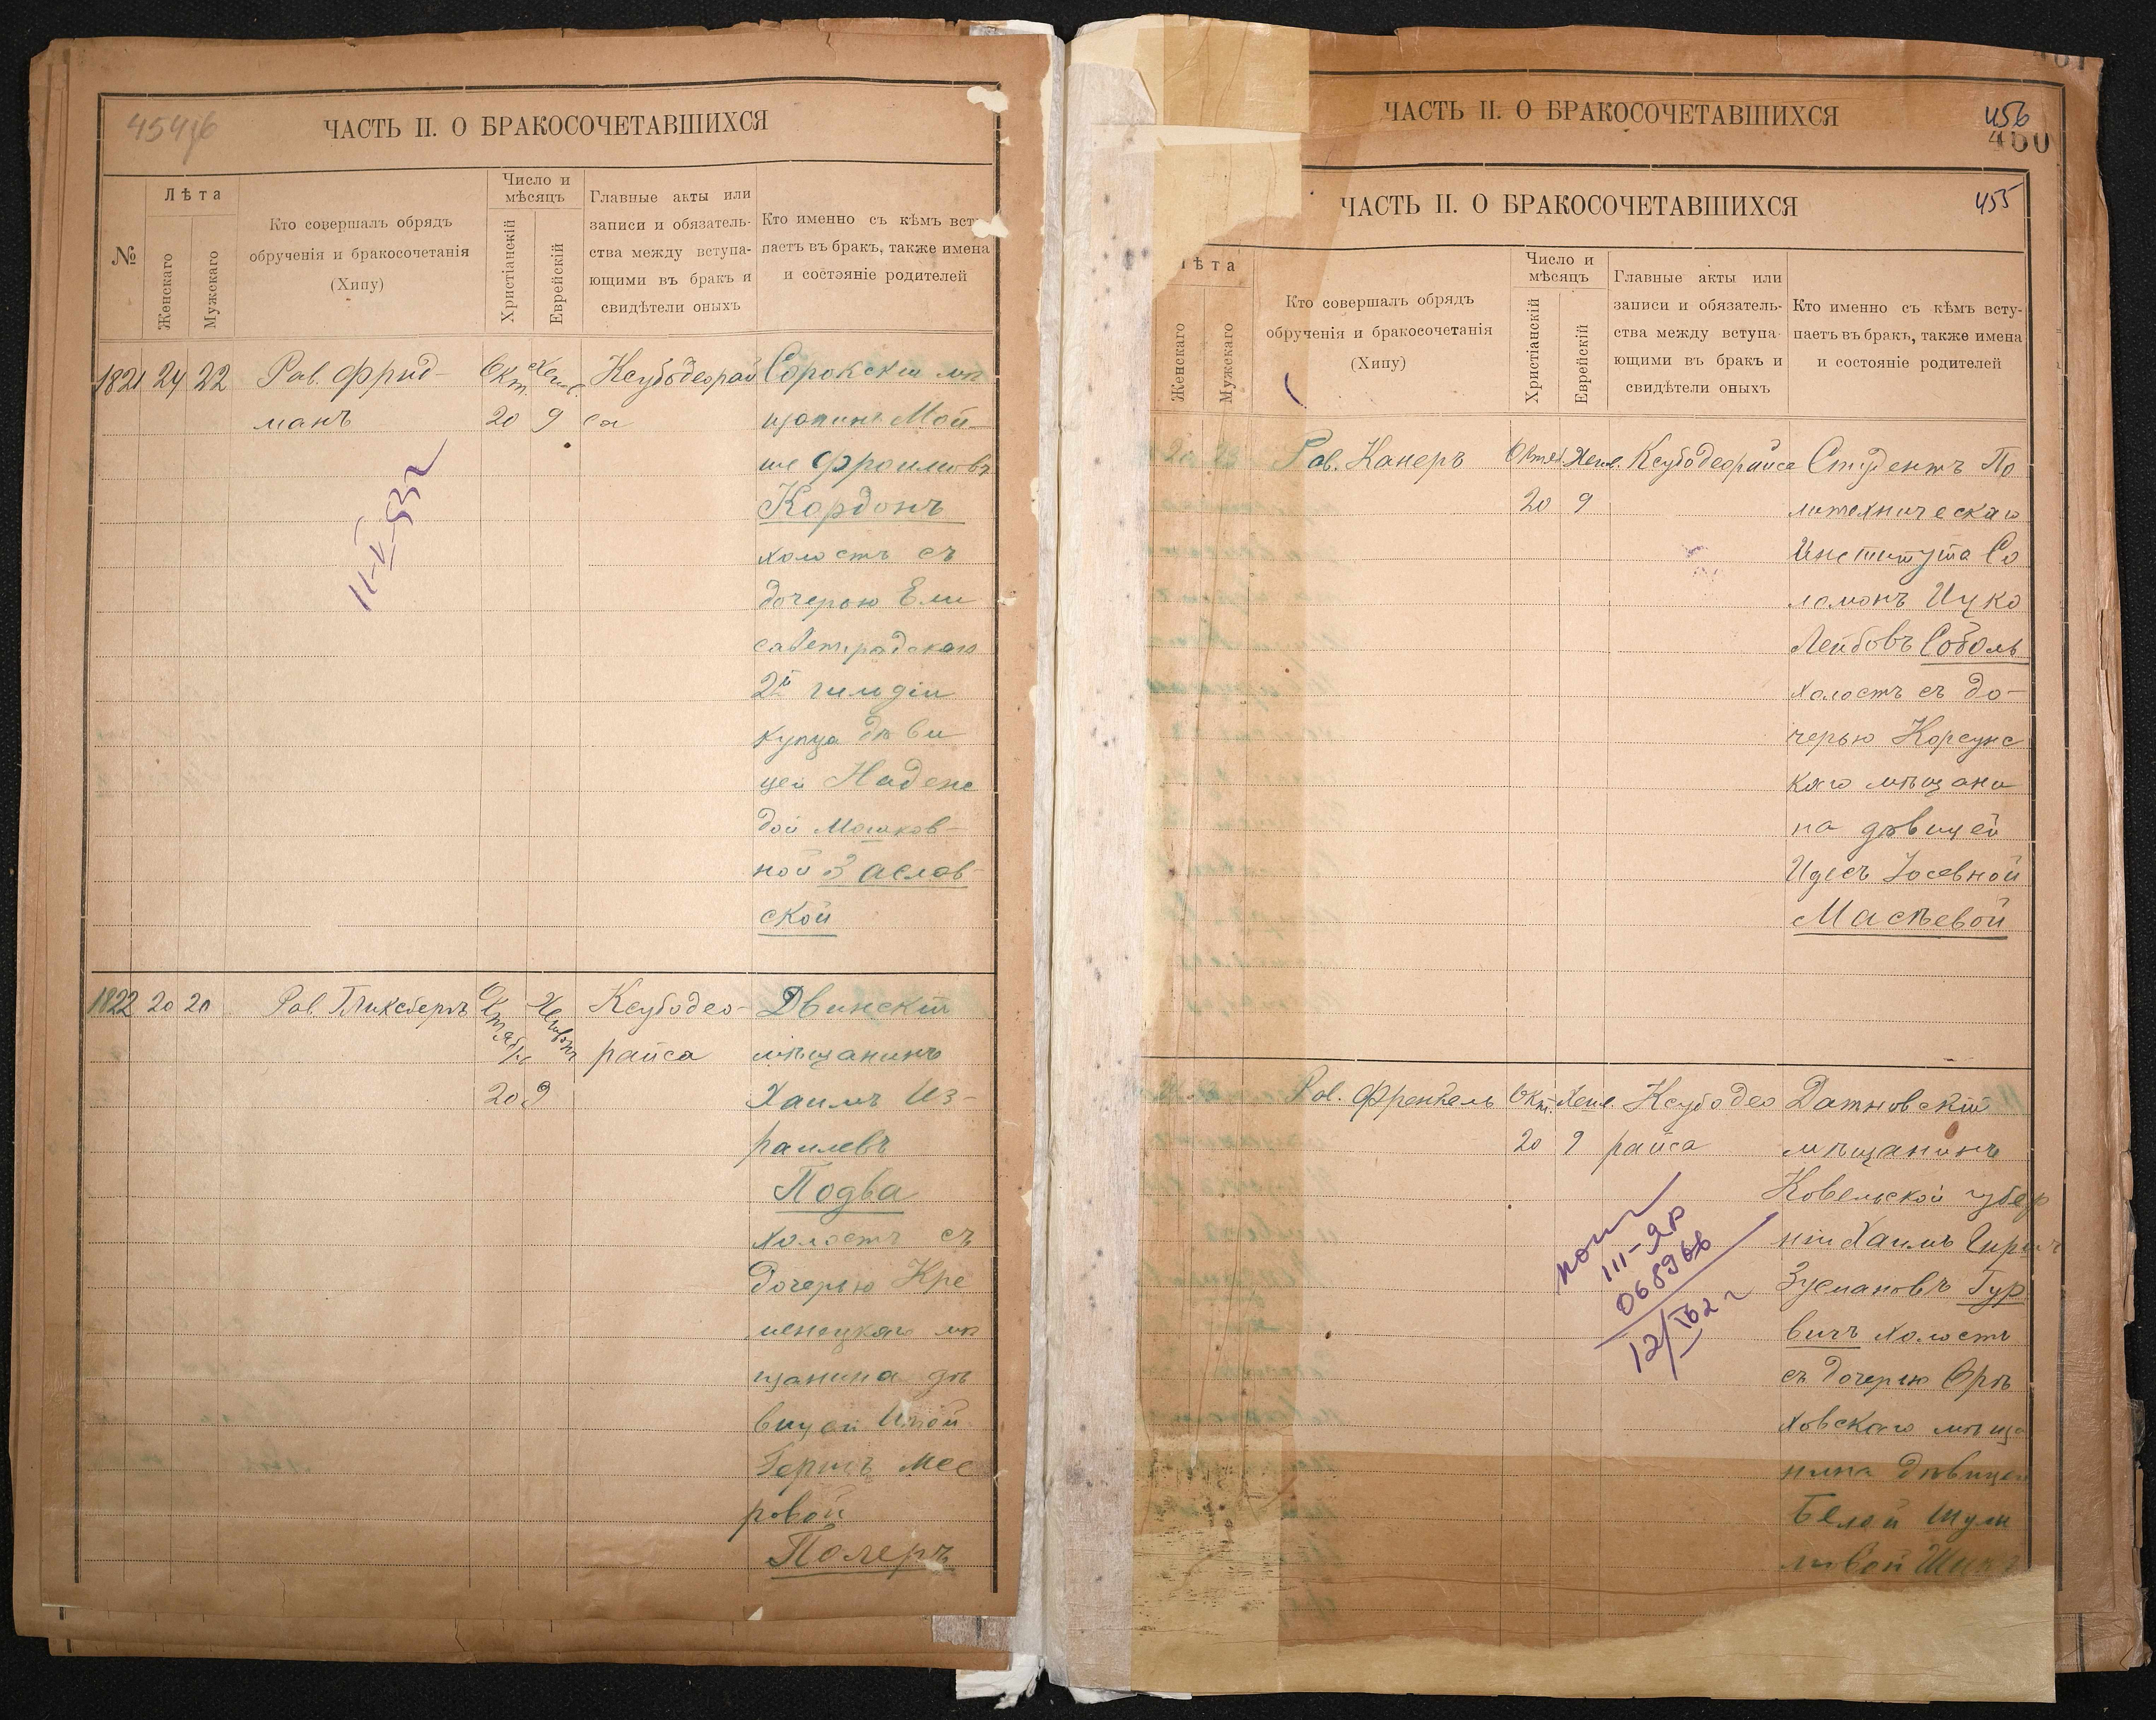 454/6
ЧАСТЬ II. О БРАКОСОЧЕТАВШИХСЯ
№
Лѣта
Женскаго
Мужскаго
Кто совершалъ обрядъ
обрученія и бракосочетанія
(Хипу)
Число и
мѣсяцъ
Христіанскій
Еврейскій
Главные акты или
записи и обязатель-
ства между вступа-
ющими въ бракъ и
свидѣтели оныхъ
Кто именно съ кѣмъ всту
паетъ въ бракъ, также имена
и состояніе родителей
1821 24 22 Рав. Фрид-
манъ
Окт. Хешв.
20 9
Ксубодеорай
са
Сорокскій мѣ
щанинъ Мой-
ше Фроимовъ
Кордонъ
холостъ съ
дочерью Ели
саветградскаго
2й гильдіи
купца дѣви
цей Надеж
дой Мошков-
ной Заслав-
ской
11-V-53г
1822 20 20 Рав. Гликсбергъ
Октябр. Хешвон
20 9
Ксубодео-
райса
Двинскій
мѣщанинъ
Хаимъ Из-
раилевъ
Подва
холостъ съ
дочерью Кре
менецкаго мѣ
щанина дѣ
вицей
Мее
ровой
Полеръ
ЧАСТЬ II. О БРАКОСОЧЕТАВШИХСЯ
456
460
ЧАСТЬ II. О БРАКОСОЧЕТАВШИХСЯ
455
ѣта
Женскаго
Мужскаго
Кто совершалъ обрядъ
обрученія и бракосочетанія
(Хипу)
Число и
мѣсяцъ
Христіанскій
Еврейскій
Главные акты или
записи и обязатель-
ства между вступа-
ющими въ бракъ и
свидѣтели оныхъ
Кто именно съ кѣмъ всту-
паетъ въ бракъ, также имена
и состояніе родителей
Рав. Канеръ
Октяб. Хешв.
20 9
Ксубодеорайса
Студентъ По
литехническаго
Института Со
ломонъ Ицко
Лейбовъ Соболь
холостъ съ до-
черью Корсунс
каго мѣщани
на дѣвицей
Идесъ Іосевной
Масѣевой
Рав. Френкель
Окт. Хешв.
20 9
Ксубодео
райса
Датновскій
мѣщанинъ
Ковельской губер
ніи Хаимъ Гирш
Зусмановъ Гур
вичъ холостъ
съ дочерью Орѣ
ховскаго мѣща
нина дѣвицей
Белой Шули
мовой
III-ЯР
068966
12/IV62г